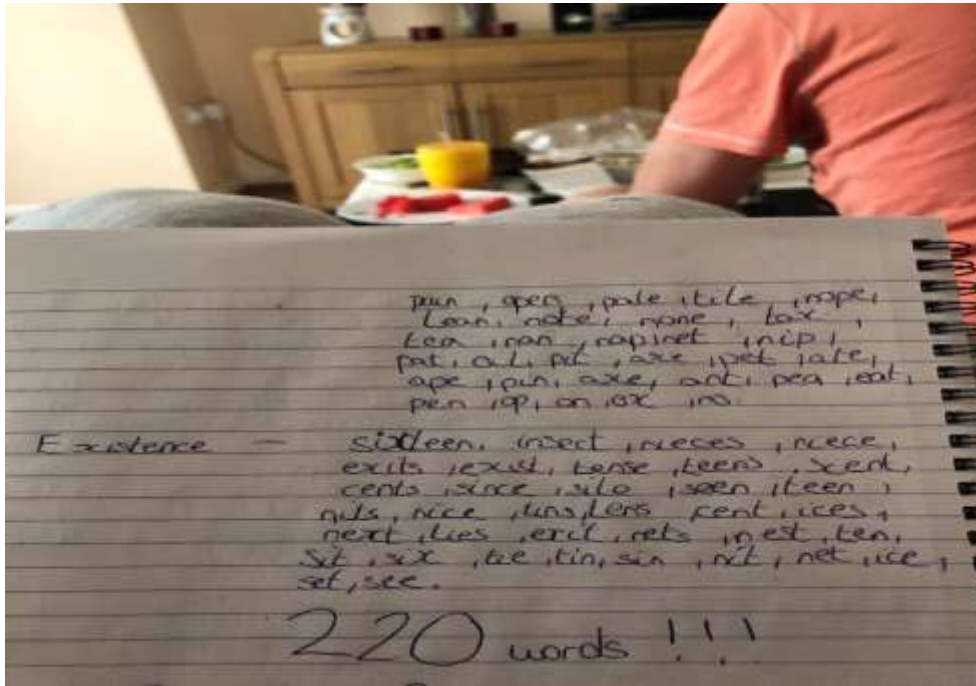 pain, open, pale, tile, nope,
loan, note, none, tax,
tea, nan, nip,
pat, pit, axe, pet, ate,
ape, pin, axe, ant, pea, eat,
pen, op, on, ox, no.
Existence - sixteen, insect, nieces, niece,
exits, exist, tense, teens, scent,
cents, since, seen, teen,
nits, nice, tins, tens, cent, ices,
next, ties, exit, nets, nest, ten,
sit, six, tie, tin, sin, nit, net, ice,
set, see.
220 words !!!